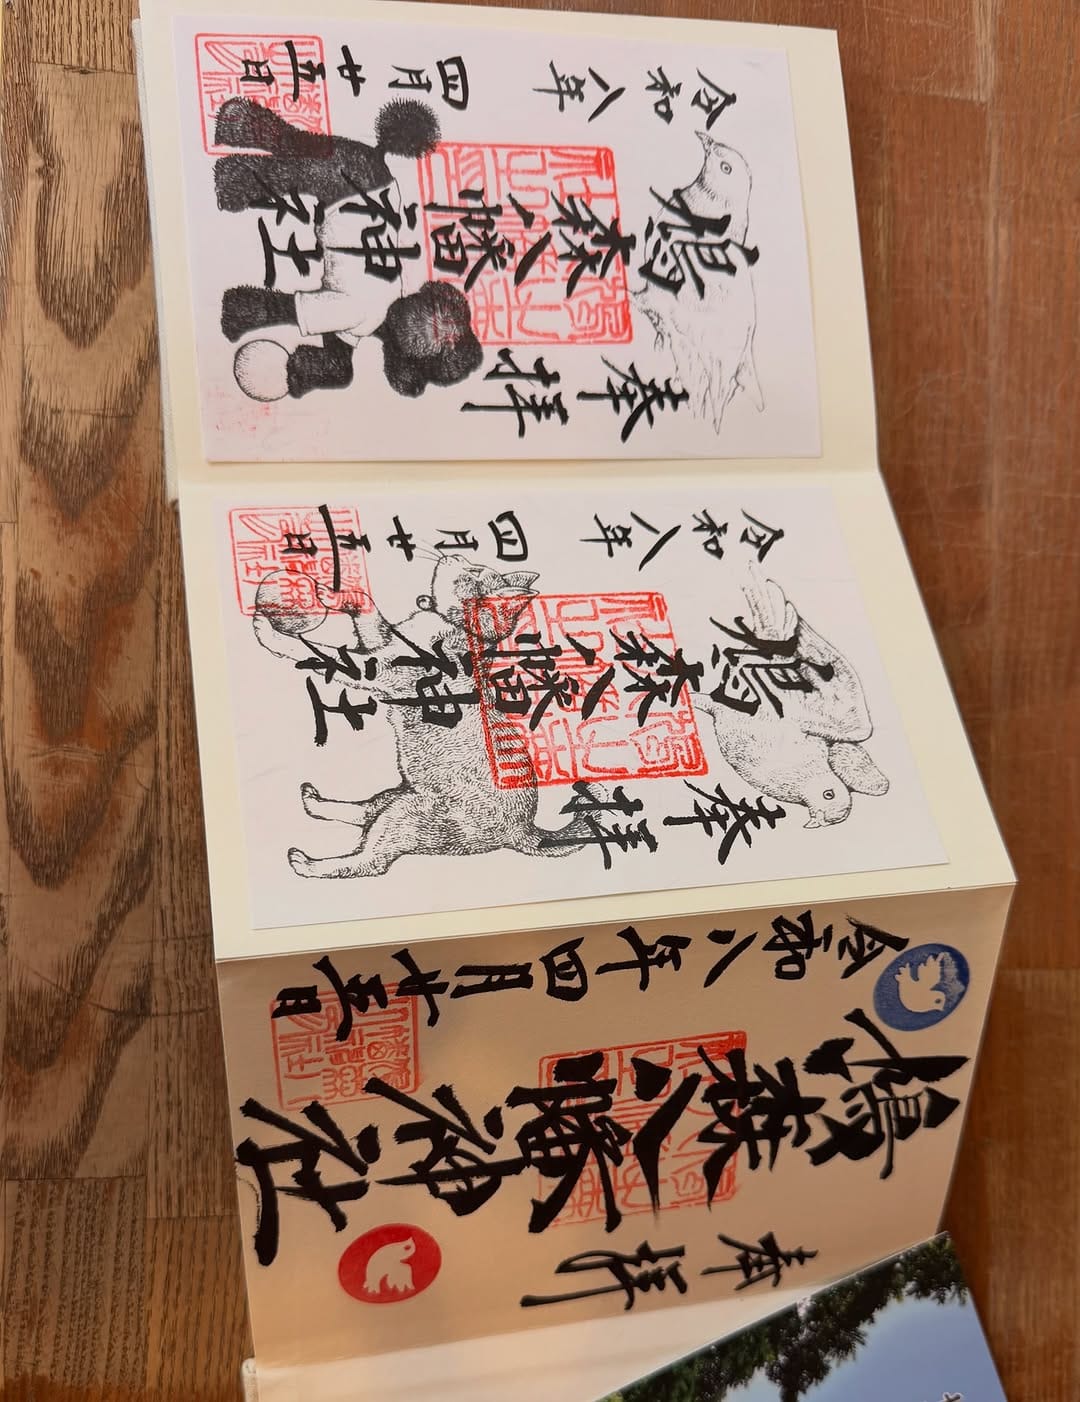 奉拝
鳩森八幡神社
令和八年四月廿五日
奉拝
鳩森八幡神社
令和八年四月廿五日
奉拝
鳩森八幡神社
令和八年四月廿五日